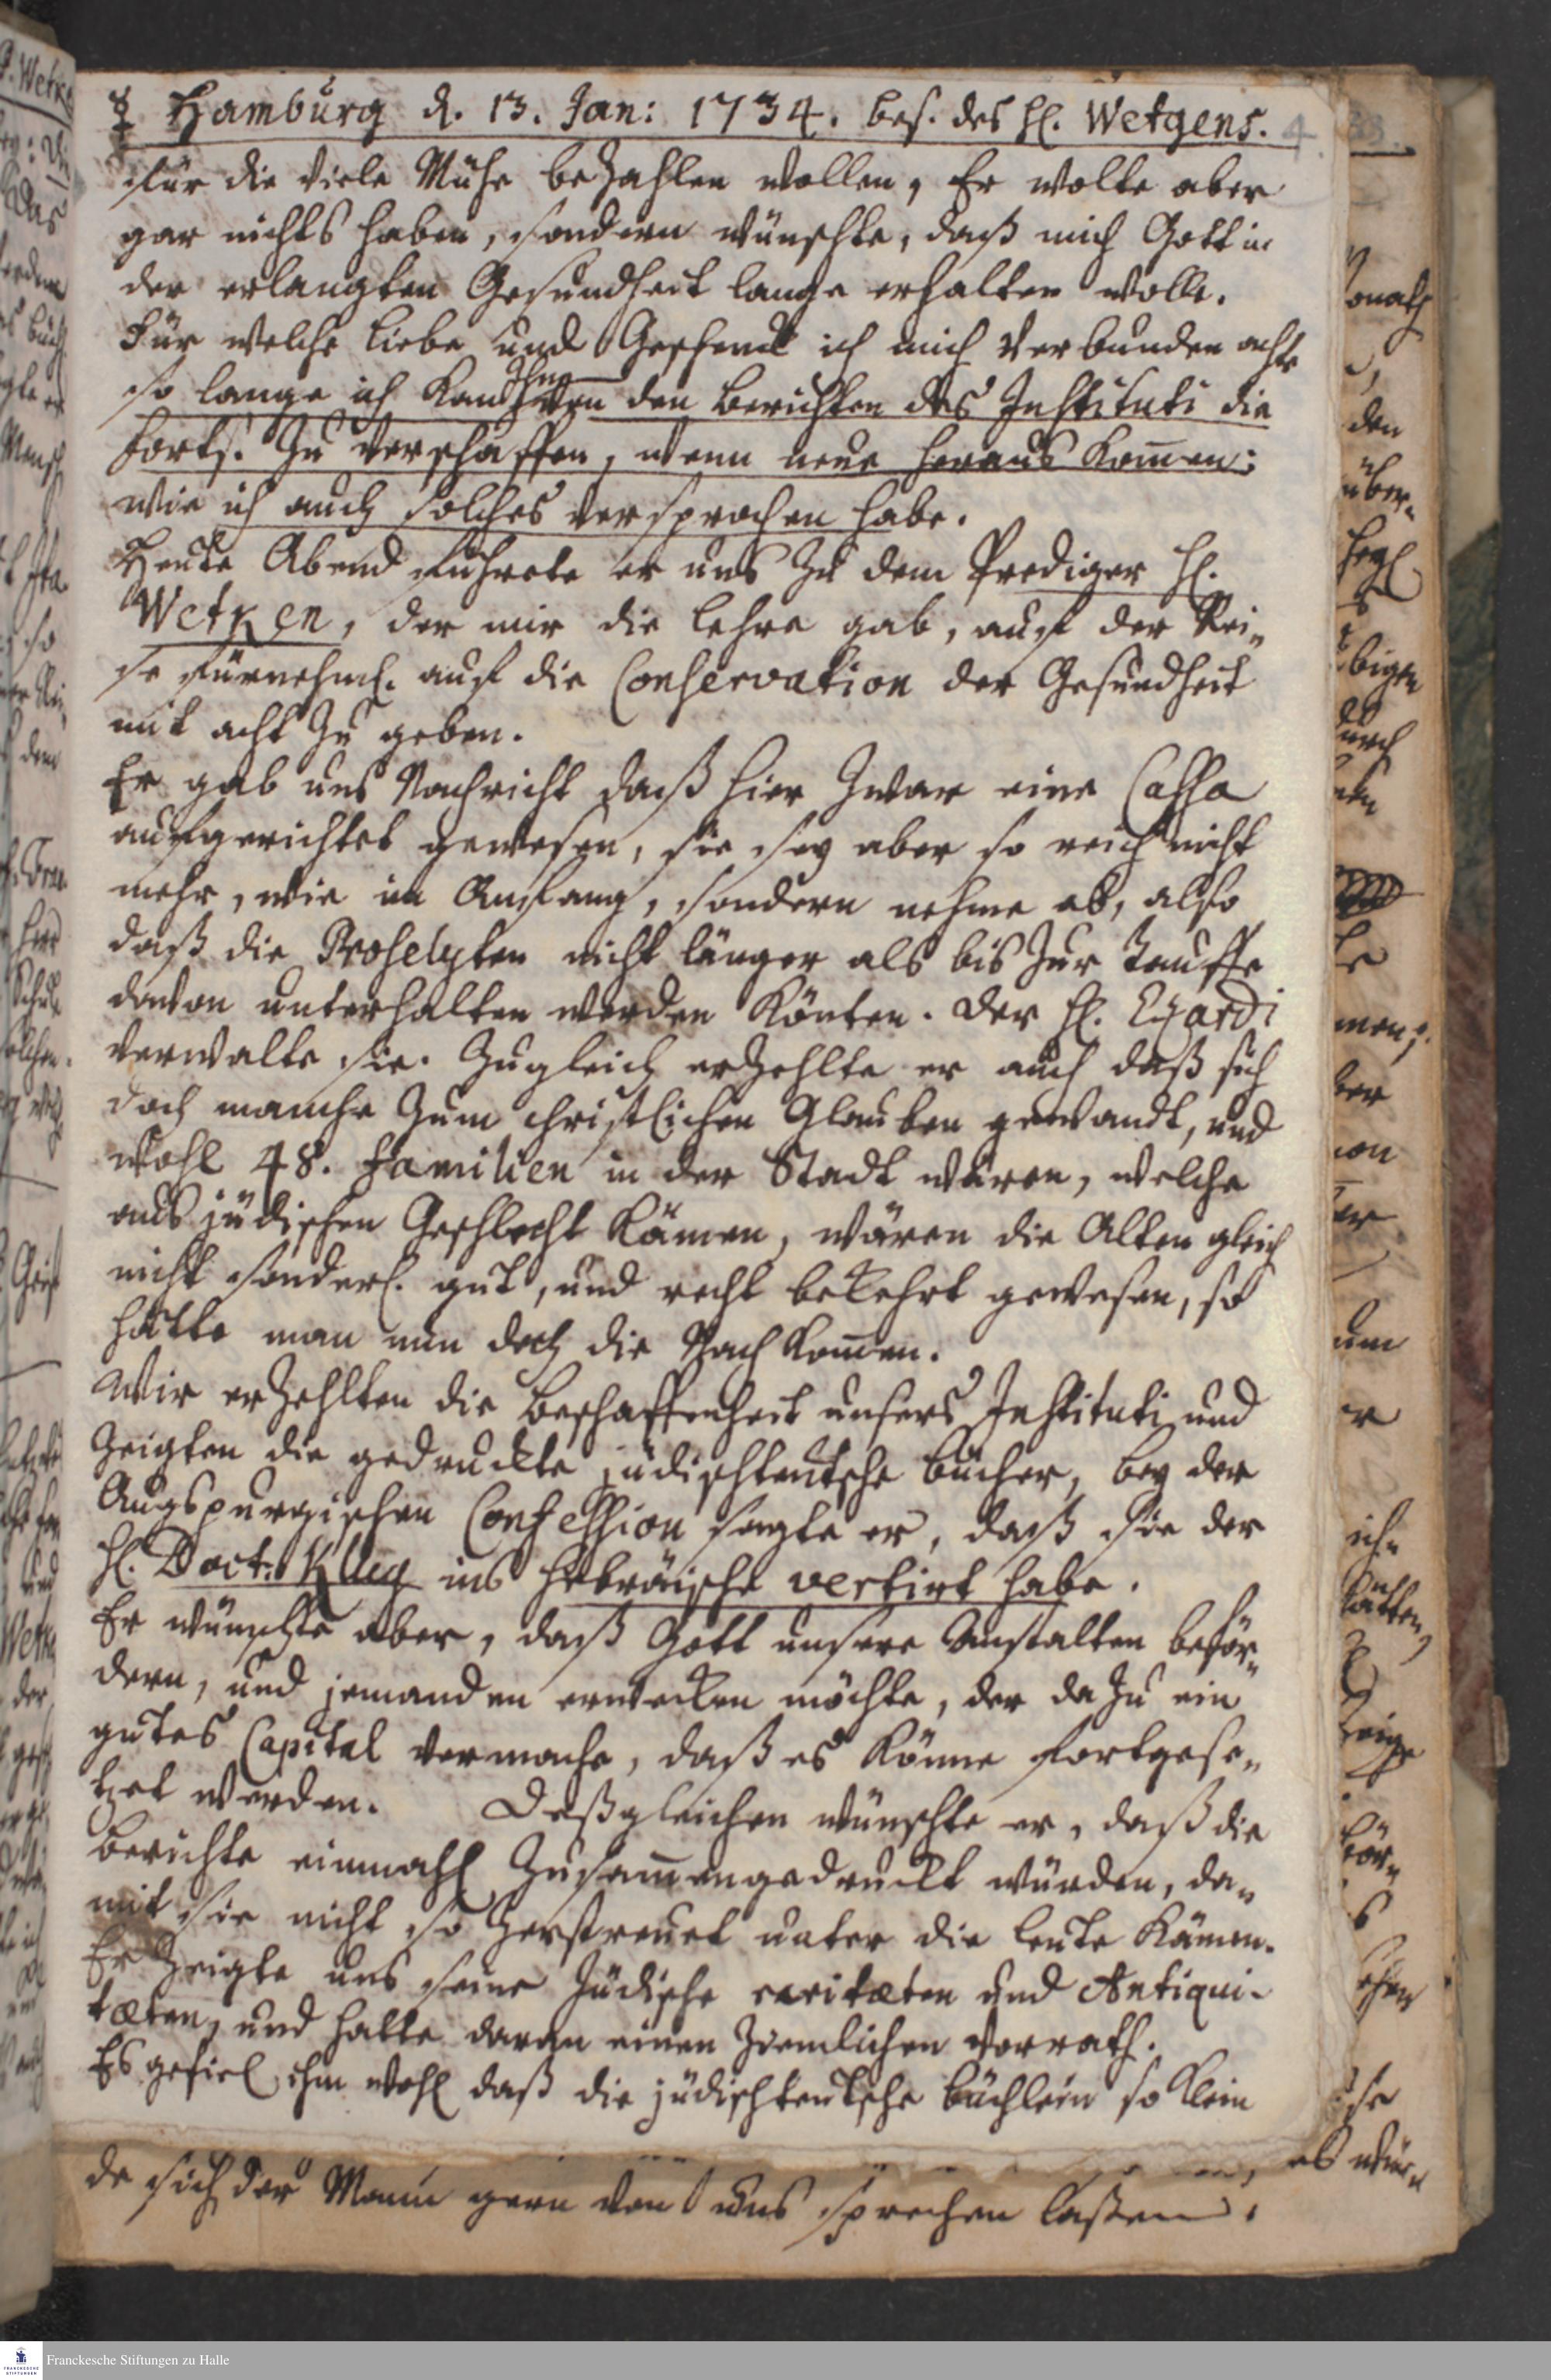 ☿ Hamburg d. 13. Jan: 1734. bes. des H. Wetgens. 4
für die viele Mühe bezahlen wollen, Er wolte aber
gar nichts haben, sondern wünschte, daß mich Gott in
der erlangten Gesundheit lange erhalten wolle.
Für welche Liebe und Geschenck ich mich verbunden achte
so lange ich kan Ihm von den Berichten des Instituti die
forts. zu verschaffen, wenn neue heraus kom̄en:
wie ich auch solches versprochen habe.
Heute Abend führete er uns zu dem Prediger H.
Wetken, der mir die Lehre gab, auf der Rei„
se fürnehml. auf die Conservation der Gesundheit
mit acht zu geben.
Er gab uns Nachricht daß hier zwar eine Cassa
aufgerichtet gewesen, sie sey aber so reich nicht
mehr, wie im Anfang, sondern nehme ab, also
daß die Proselyten nicht länger als bis zur Tauffe
davon unterhalten werden könten. Der H. Ezardi
verwalte sie. Zugleich erzehlte er auch daß sich
doch manche zum christlichen Glauben gewandt, und
wohl 48. Familien in der Stadt wären, welche
aus jüdischen Geschlecht kämen, wären die Alten gleich
nicht sonderl. gut, und recht bekehrt gewesen, so
hätte man nun doch die Nachkom̄en.
Wir erzehlten die Beschaffenheit unsers Instituti und
zeigten die gedruckte jüdischteutsche Bücher, bey der
Augspurgischen Confession sagte er, daß sie der
H. Doct: Klug ins Hebräische vertirt habe.
Er wünschte aber, daß Gott unsere Anstalten beför„
dern, und jemanden erwecken möchte, der dazu ein
gutes Capital vermache, daß es könne fortgese„
tzet werden. Deßgleichen wünschte er, daß die
Berichte einmahl zusam̄engedruckt würden, da„
mit sie nicht so zerstreuet unter die Leute kämen.
Er zeigte uns seine Jüdische raritæten und Antiqui-
tæten, und hatte daran einen ziemlichen Vorrath.
Es gefiel ihm wohl daß die jüdischteutsche Büchlein so klein
de sich der Mann gern von uns sprechen laßen.
Franckesche Stiftungen zu Halle